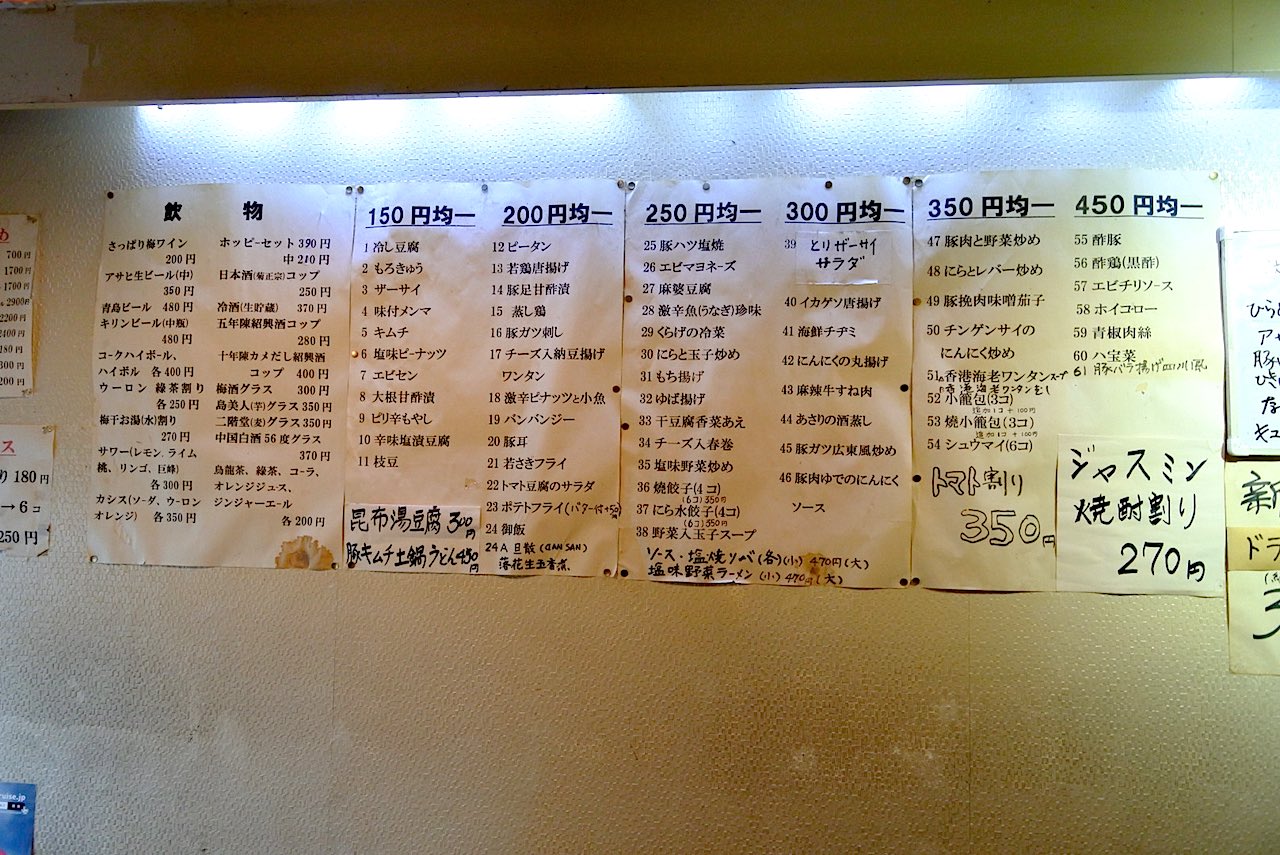 め
700円
1700円
1700円
2900円
2200円
2400円
180円
300円
200円
ス
り 180円
→6コ
250円
飲物
さっぱり梅ワイン
200円
アサヒ生ビール(中)
350円
青島ビール 480円
キリンビール(中瓶)
480円
コークハイボール、
ハイボル 各400円
ウーロン 緑茶割り
各250円
梅干お湯(水)割り
270円
サワー(レモン、ライム
桃、リンゴ、巨峰)
各300円
カシス(ソーダ、ウーロン
オレンジ) 各350円
ホッピーセット390円
中210円
日本酒(菊正宗)コップ
250円
冷酒(生貯蔵) 370円
五年陳紹興酒コップ
280円
十年陳カメだし紹興酒
コップ 400円
梅酒グラス 300円
島美人(芋)グラス350円
二階堂(麦)グラス350円
中国白酒56度グラス
370円
烏龍茶、緑茶、コーラ、
オレンジジュス、
ジンジャーエール
各200円
150円均一
1 冷し豆腐
2 もろきゅう
3 ザーサイ
4 味付メンマ
5 キムチ
6 塩味ピーナッツ
7 エビセン
8 大根甘酢漬
9 ピリ辛もやし
10 辛味塩漬豆腐
11 枝豆
昆布湯豆腐 300円
豚キムチ土鍋うどん450円
200円均一
12 ピータン
13 若鶏唐揚げ
14 豚足甘酢漬
15 蒸し鶏
16 豚ガツ刺し
17 チーズ入納豆揚げ
ワンタン
18 激辛ピナッツと小魚
19 バンバンジー
20 豚耳
21 若さきフライ
22 トマト豆腐のサラダ
23 ポテトフライ(バター付+50)
24 御飯
24A 旦散(DANSAN)
落花生五香煮
250円均一
25 豚ハツ塩焼
26 エビマヨネーズ
27 麻婆豆腐
28 激辛魚(うなぎ)珍味
29 くらげの冷菜
30 にらと玉子炒め
31 もち揚げ
32 ゆば揚げ
33 干豆腐香菜あえ
34 チーズ入春巻
35 塩味野菜炒め
36 燒餃子(4コ)
(6コ)350円
37 にら水餃子(4コ)
(6コ)350円
38 野菜入玉子スープ
ソース・塩焼ソバ(各)(小) 470円(大)
塩味野菜ラーメン(小) 470円(大)
300円均一
39 とりザーサイ
サラダ
40 イカゲソ唐揚げ
41 海鮮チヂミ
42 にんにくの丸揚げ
43 麻辣牛すね肉
44 あさりの酒蒸し
45 豚ガツ広東風炒め
46 豚肉ゆでのにんにく
ソース
350円均一
47 豚肉と野菜炒め
48 にらとレバー炒め
49 豚挽肉味噌茄子
50 チンゲンサイの
にんにく炒め
51A香港海老ワンタンスープ
香港海老ワンタンむし
52 小籠包(3コ)
追加1コ+100円
53 燒小籠包(3コ)
追加1コ+100円
54 シュウマイ(6コ)
トマト割り
350円
450円均一
55 酢豚
56 酢鶏(黒酢)
57 エビチリソース
58 ホイコーロー
59 青椒肉絲
60 八宝菜
61 豚バラ揚げ四川風
ジャスミン
焼酎割り
270円
ひら
ア
豚
ひき
な
キュ
新
ドラ
3
uise.jp